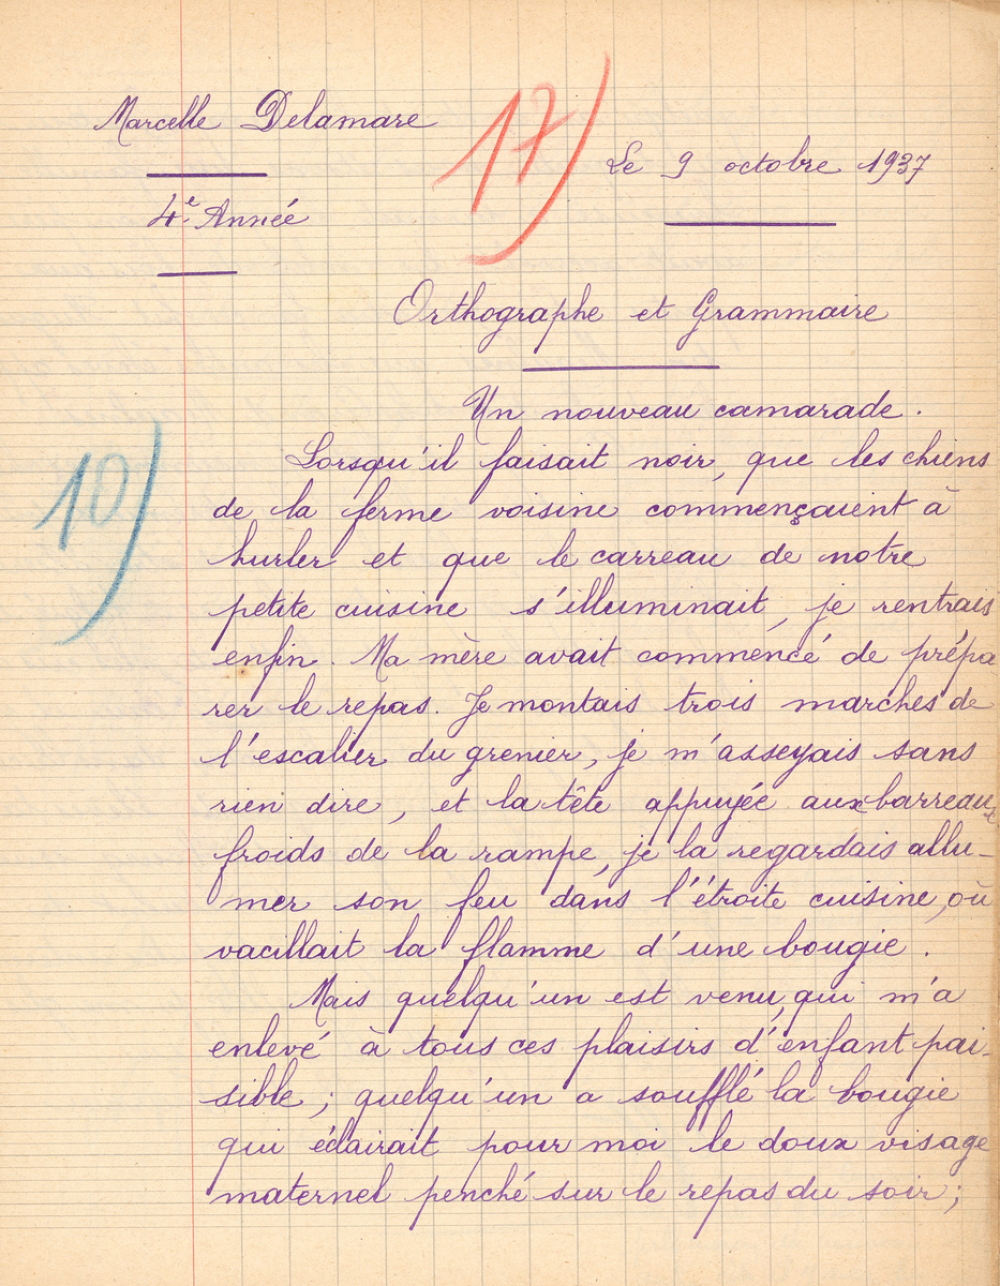 Marcelle Delamare
17
Le 9 octobre 1937
4e Année
Orthographe et Grammaire
Un nouveau camarade.
10
Lorsqu'il faisait noir, que les chiens
de la ferme voisine commençaient à
hurler et que le carreau de notre
petite cuisine s'illuminait, je rentrais
enfin. Ma mère avait commencé de prépa
rer le repas. Je montais trois marches de
l'escalier du grenier, je m'asseyais sans
rien dire, et la tête appuyée aux barreaux
froids de la rampe, je la regardais allu-
mer son feu dans l'étroite cuisine, où
vacillait la flamme d'une bougie.
Mais quelqu'un est venu, qui m'a
enlevé à tous ces plaisirs d'enfant pai-
sible ; quelqu'un a soufflé la bougie
qui éclairait pour moi le doux visage
maternel penché sur le repas du soir ;